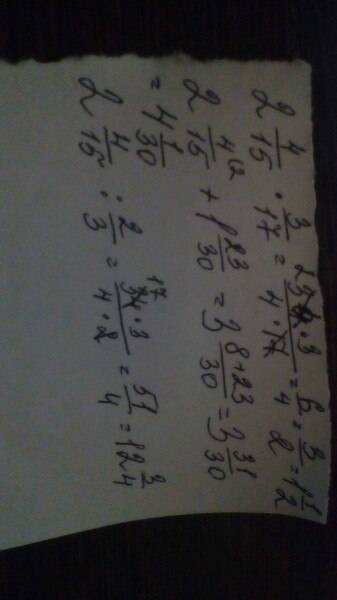 2 4/15 · 3/17 = 34·3/4·17 = 6/4 = 3/2 = 1 1/2
2 4/15 + 1 23/30 = 3 8+23/30 = 3 31/30
= 4 1/30
2 4/15 : 2/3 = 34·3/4·2 = 51/4 = 12 3/4